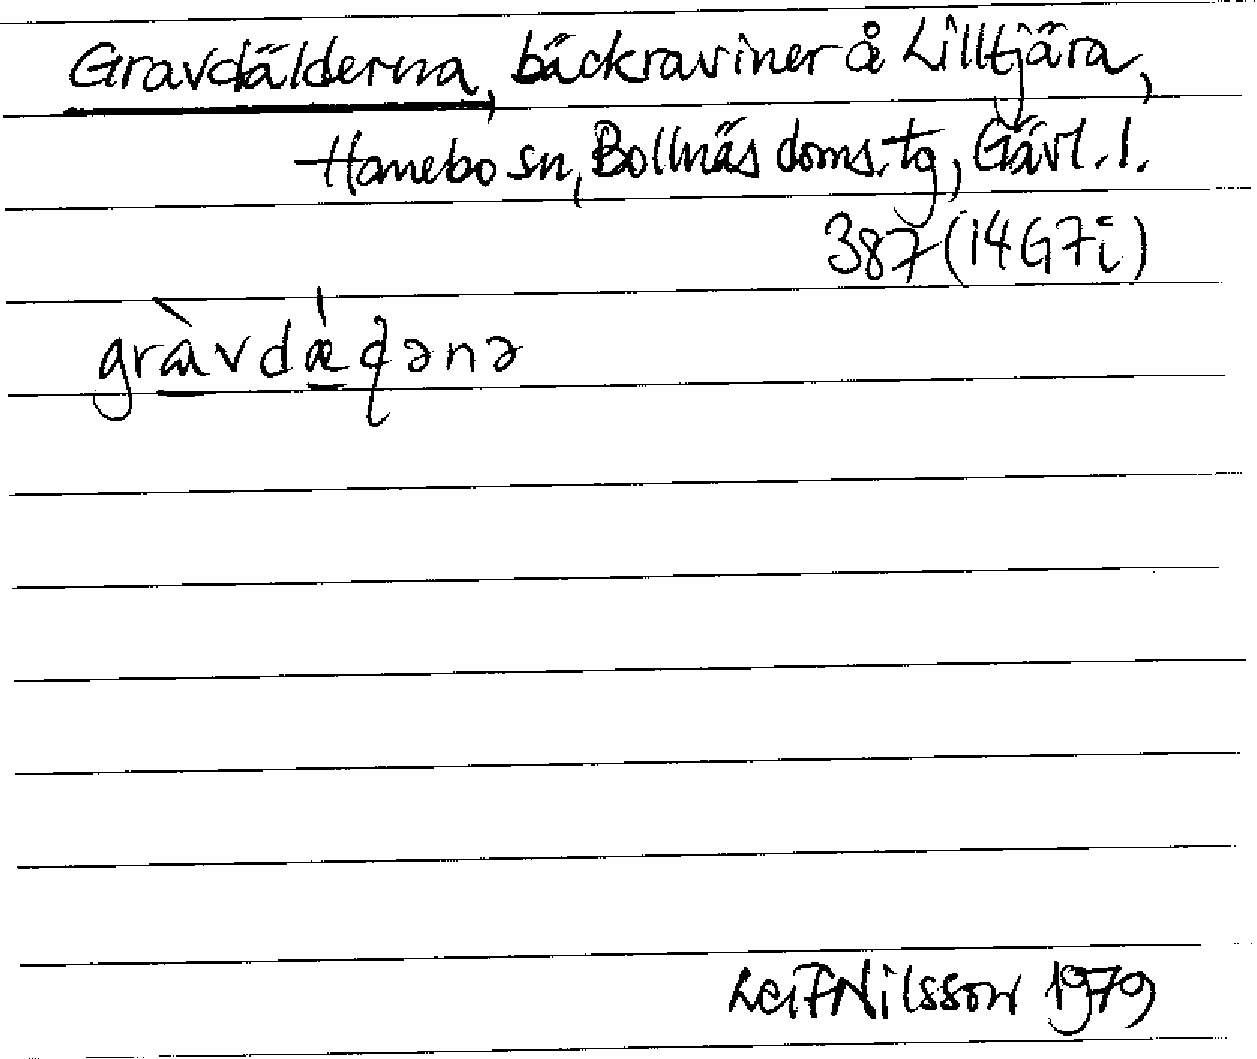 Gravdälderna, bäckraviner å Lilltjära,
Hanebo sn, Bollnäs doms.tg, Gävl. l.
387 (14G7i)
Leif Nilsson 1979